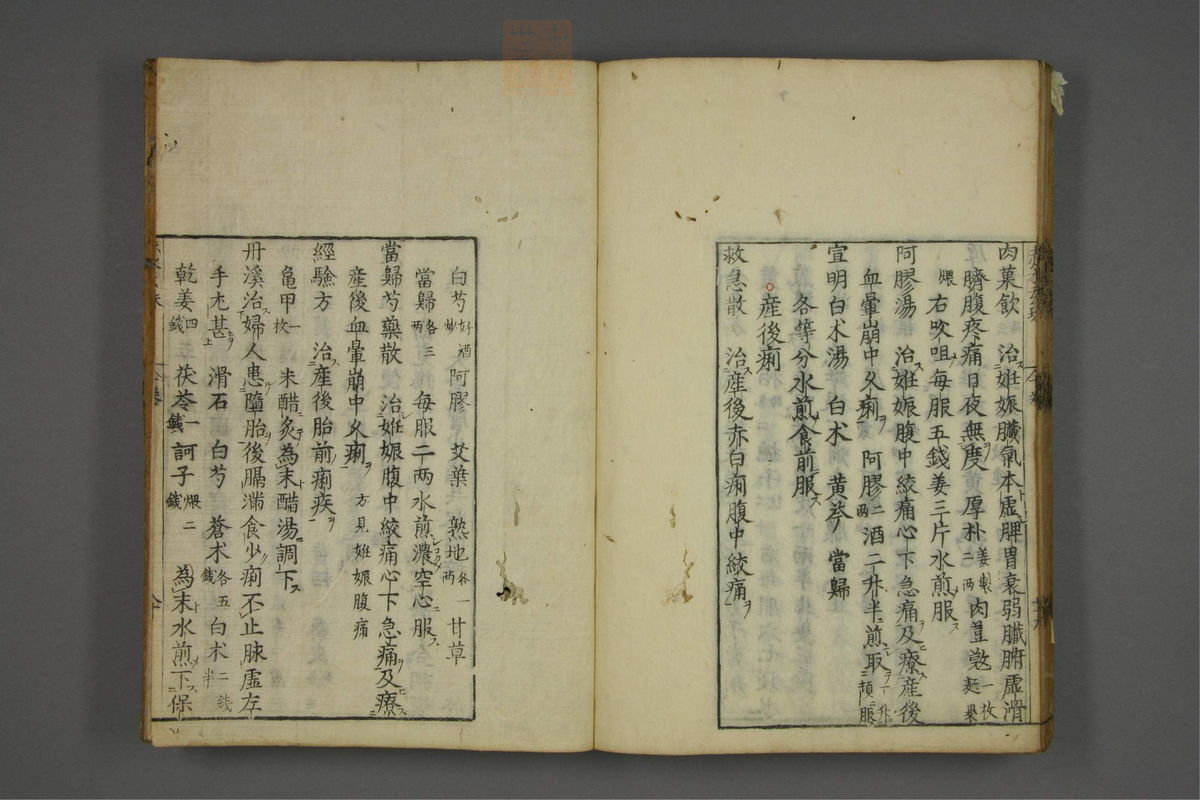 肉菓飲 治姙娠臟氣本虛脾胃衰弱臟腑虛滑
臍腹疼痛日夜無度 厚朴姜製二两 肉荳蔲一枚麺裹
煨 右㕮咀每服五錢姜三片水煎服
阿膠湯 治姙娠腹中絞痛心下急痛及療產後
血暈崩中久痢 阿膠二两 酒二升半煎取一升頓服
宣明白朮湯 白朮 黃芩 當歸
各等分水煎食前服
產後痢
救急散 治產後赤白痢腹中絞痛
白芍好酒炒 阿膠 艾葉 熟地各一两 甘草
當歸各三两 每服二两水煎濃空心服
當歸芍藥散 治姙娠腹中絞痛心下急痛及療
產後血暈崩中久痢 方見姙娠腹痛
經驗方 治產後胎前痢疾
亀甲一枚 米醋炙為末醋湯調下
丹溪治婦人患墮胎後膈滿食少痢不止脉虛左
手尤甚 滑石 白芍 蒼朮各五錢 白朮二錢半
乾姜四錢 茯苓一錢 訶子煨二錢 為末水煎下保